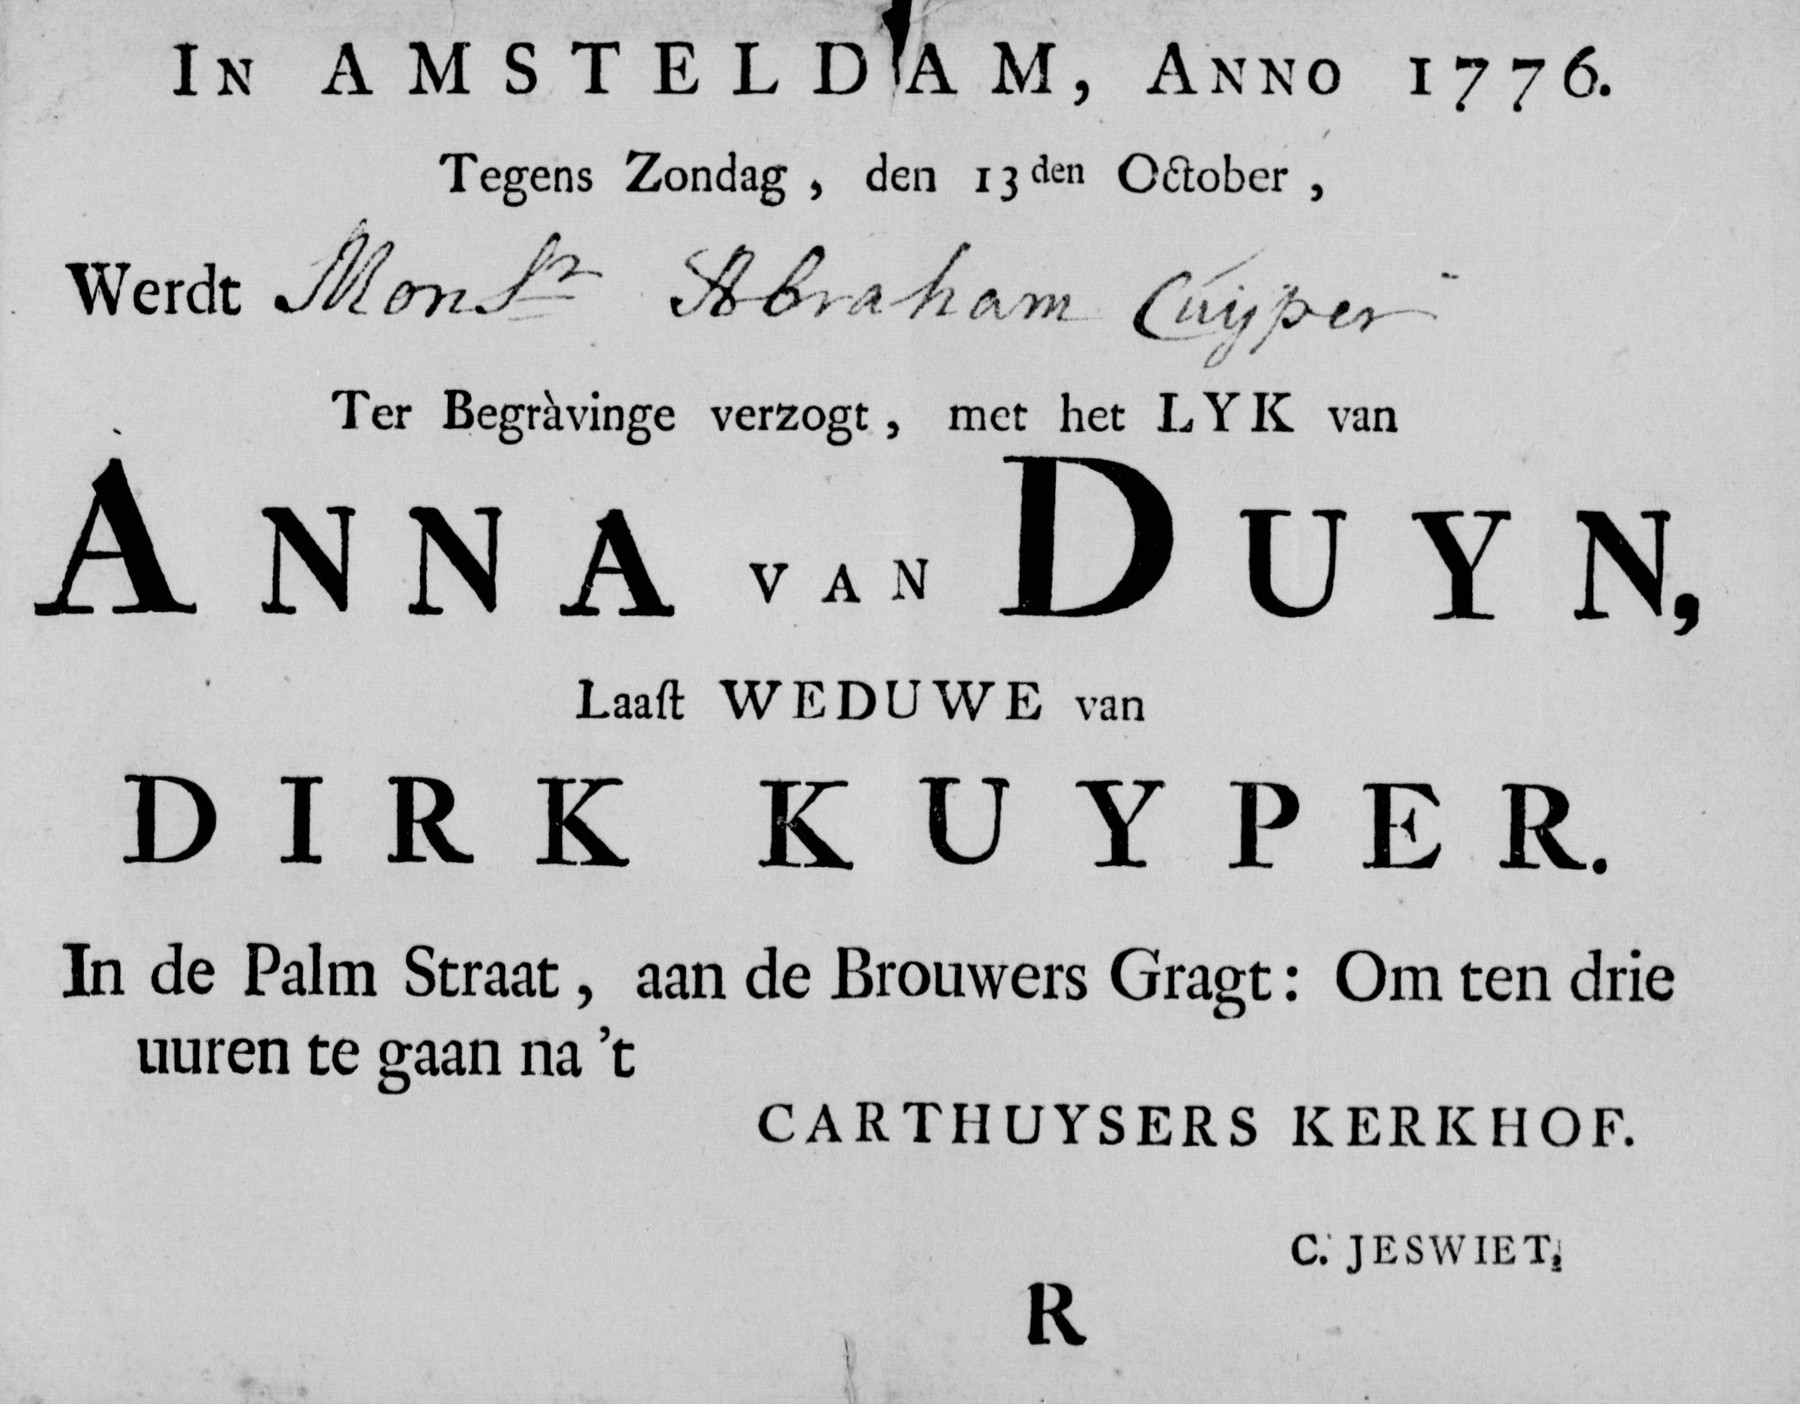 In AMSTELDAM, Anno 1776.
Tegens Zondag, den 13den October,
Werdt Monsr Abraham Cuyper
Ter Begràvinge verzogt, met het LYK van
ANNA VAN DUYN,
Laaſt WEDUWE van
DIRK KUYPER.
In de Palm Straat, aan de Brouwers Gragt: Om ten drie
uuren te gaan na 't
CARTHUYSERS KERKHOF.
C. JESWIET.
R